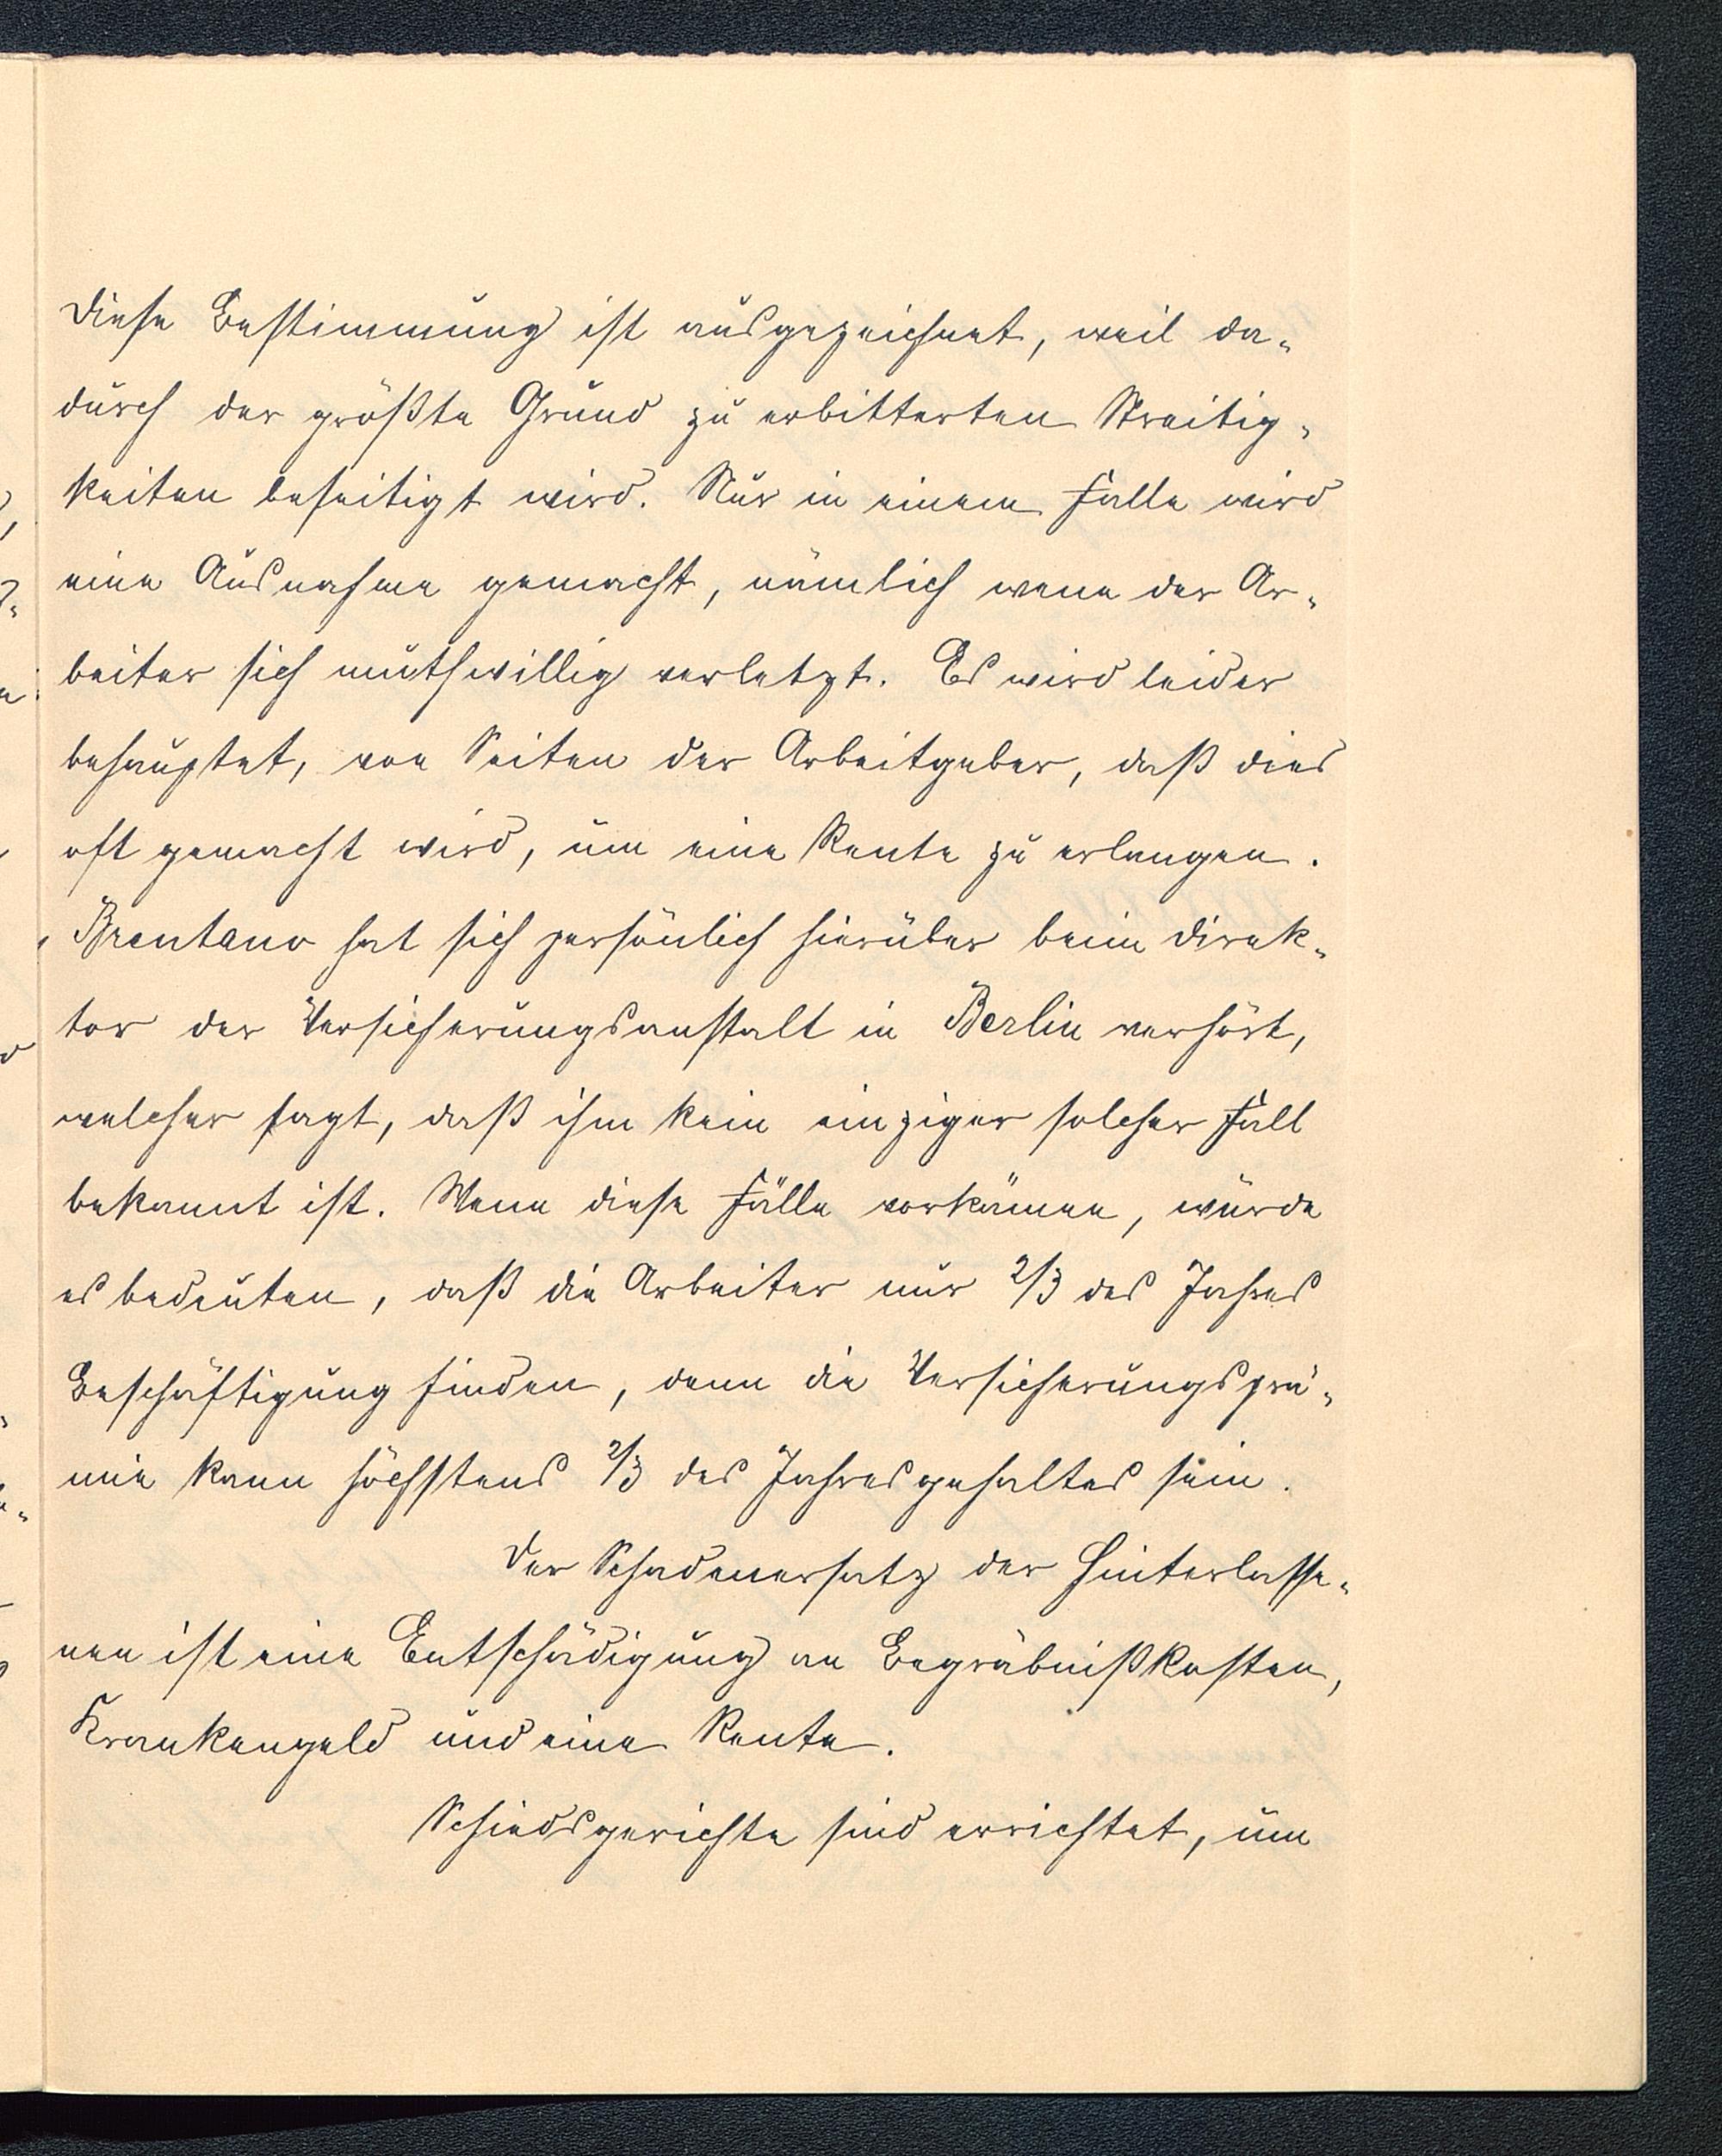 Diese Bestimmung ist ausgezeichnet, weil da-
durch der größte Grund zu erbitterten Streitig-
keiten beseitigt wird. Nur in einem Falle wird
eine Ausnahme gemacht, nämlich wenn der Ar-
beiter sich muthwillig verletzt. Es wird leider
behauptet, von Seiten der Arbeitgeber, daß dies
oft gemacht wird, um eine Rente zu erlangen.
Brentano hat sich persönlich hierüber beim Direk-
tor der Versicherungsanstalt in Berlin verhört,
welcher sagt, daß ihm kein einziger solcher Fall
bekannt ist. Wenn diese Fälle vorkämen, würde
es bedeuten, daß die Arbeiter nur 2/3 des Jahres
Beschäftigung finden, denn die Versicherungsprä-
mie kann höchstens 2/3 des Jahresgehaltes sein.
Der Schadenersatz der Hinterlasse-
nen ist eine Entschädigung an Begräbnißkosten,
Krankengeld und eine Rente.
Schiedsgerichte sind errichtet, um